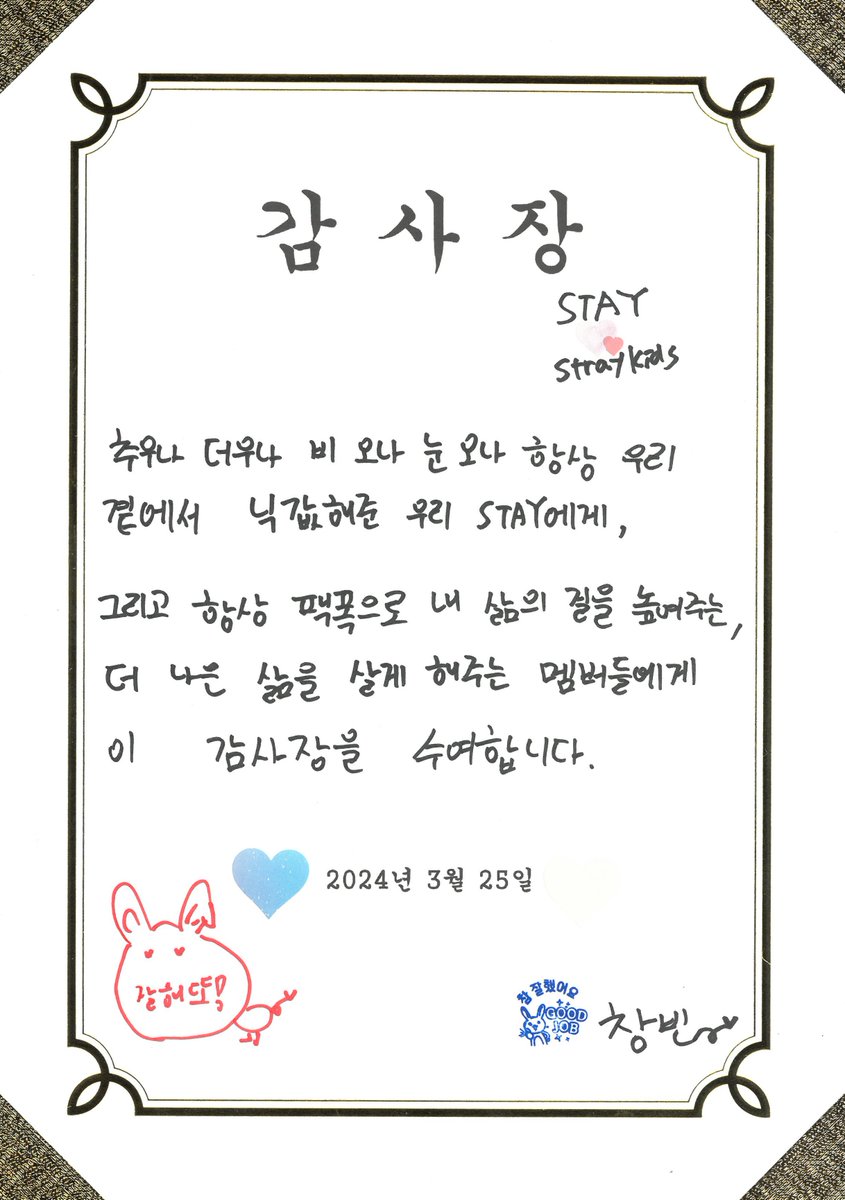 감사장
STAY
straykids
추우나 더우나 비 오나 눈 오나 항상 우리
곁에서 닉값해준 우리 STAY에게,
그리고 항상 팩폭으로 내 삶의 질을 높여주는,
더 나은 삶을 살게 해주는 멤버들에게
이 감사장을 수여합니다.
2024년 3월 25일
잘해또!
참 잘했어요
GOOD
JOB
창빈